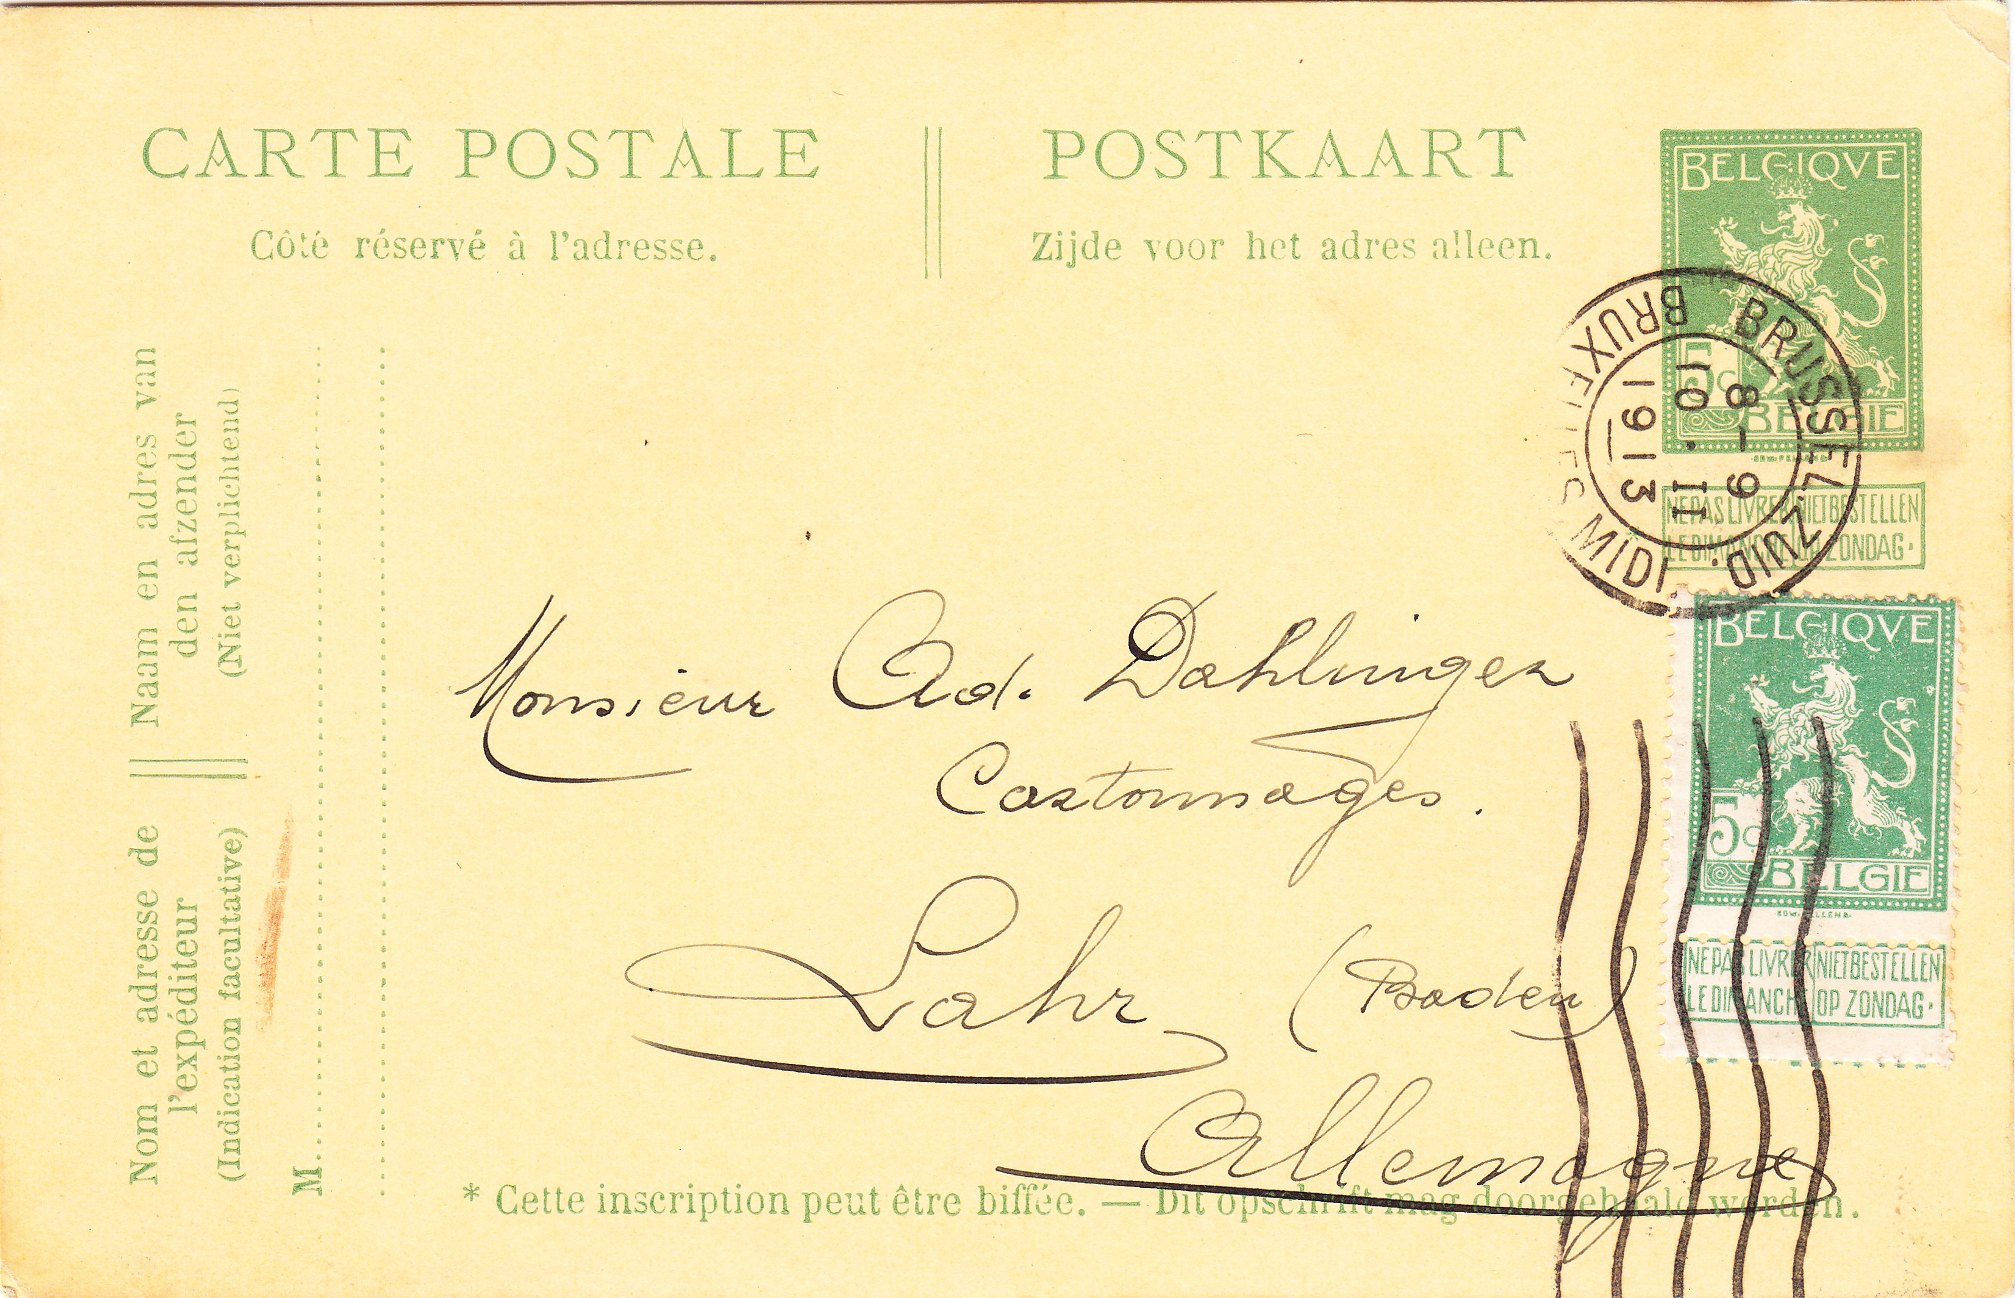 CARTE POSTALE
Côté réservé à l'adresse.
POSTKAART
Zijde voor het adres alleen.
BELGIQVE
5c
BELGIE
EDW. PELLENS
NE PAS LIVRER LE DIMANCHE
NIET BESTELLEN OP ZONDAG.
BRUSSEL ZUID.
8-9
10.II
1913
BRUXELLES MIDI
BELGIQVE
5c
BELGIE
EDW. PELLENS
NE PAS LIVRER
NIET BESTELLEN
LE DIMANCHE
OP ZONDAG.
Naam en adres van
den afzender
(Niet verplichtend)
Nom et adresse de
l'expéditeur
(Indication facultative)
M
Monsieur Ad. Dahlinger
Cartonnages.
Lahr (Baden)
Allemagne
* Cette inscription peut être biffée. — Dit opschrift mag doorgehaald worden.